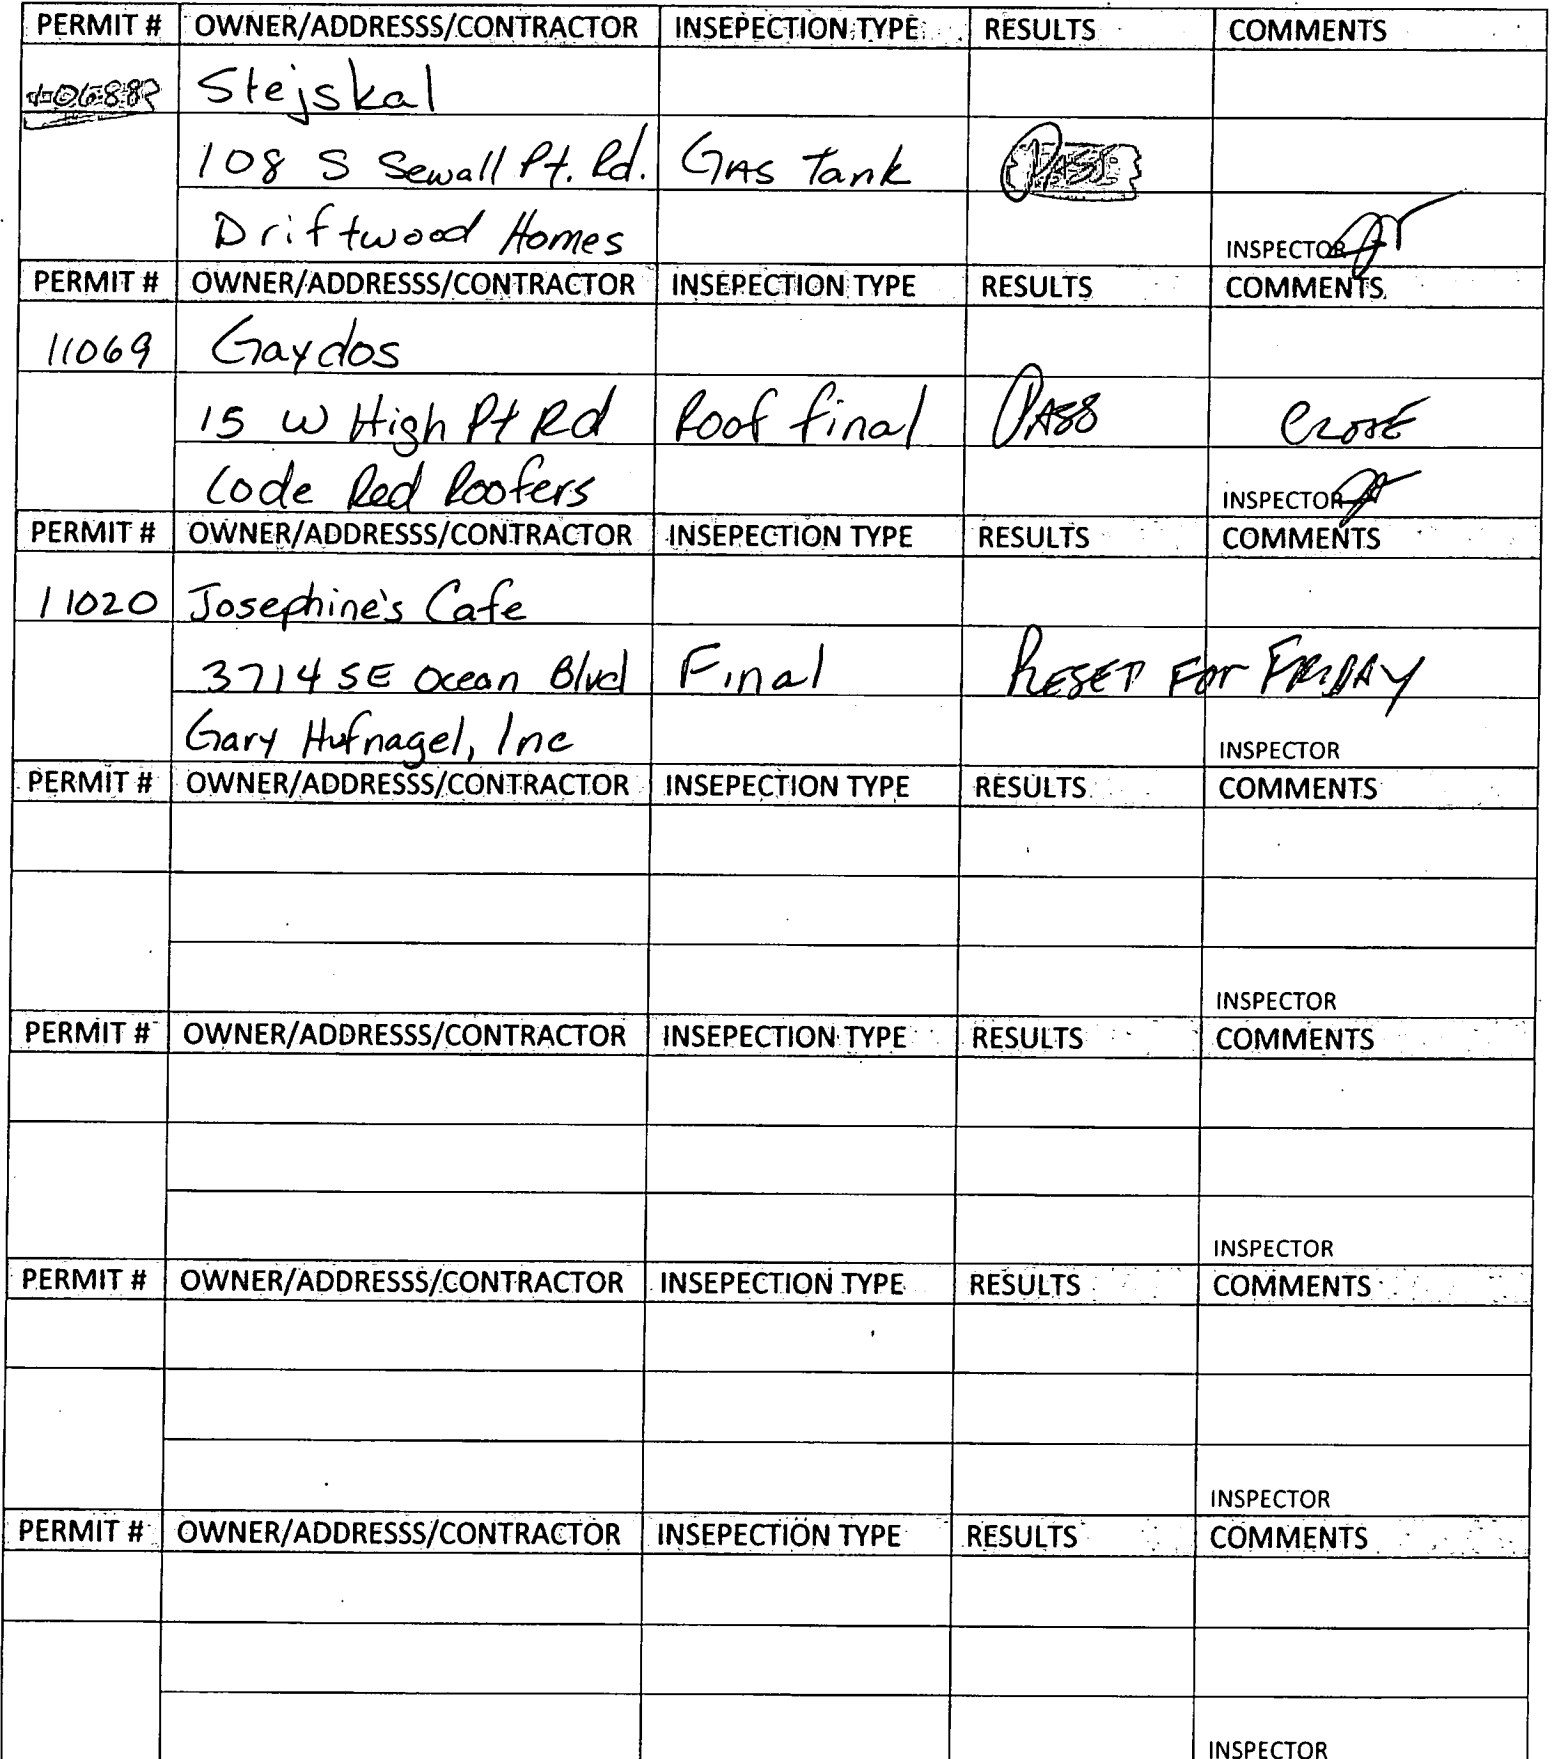 PERMIT # OWNER/ADDRESSS/CONTRACTOR INSEPECTION TYPE RESULTS COMMENTS
Stejskal
108 S Sewall Pt. Rd. GAS Tank PASS
Driftwood Homes INSPECTOR
PERMIT # OWNER/ADDRESSS/CONTRACTOR INSEPECTION TYPE RESULTS COMMENTS
11069 Gaydos
15 W High Pt Rd Roof final PASS CLOSE
Code Red Roofers INSPECTOR
PERMIT # OWNER/ADDRESSS/CONTRACTOR INSEPECTION TYPE RESULTS COMMENTS
11020 Josephine's Cafe
3714 SE Ocean Blvd Final RESET FOR FRIDAY
Gary Hufnagel, Inc INSPECTOR
PERMIT # OWNER/ADDRESSS/CONTRACTOR INSEPECTION TYPE RESULTS COMMENTS
INSPECTOR
PERMIT # OWNER/ADDRESSS/CONTRACTOR INSEPECTION TYPE RESULTS COMMENTS
INSPECTOR
PERMIT # OWNER/ADDRESSS/CONTRACTOR INSEPECTION TYPE RESULTS COMMENTS
INSPECTOR
PERMIT # OWNER/ADDRESSS/CONTRACTOR INSEPECTION TYPE RESULTS COMMENTS
INSPECTOR